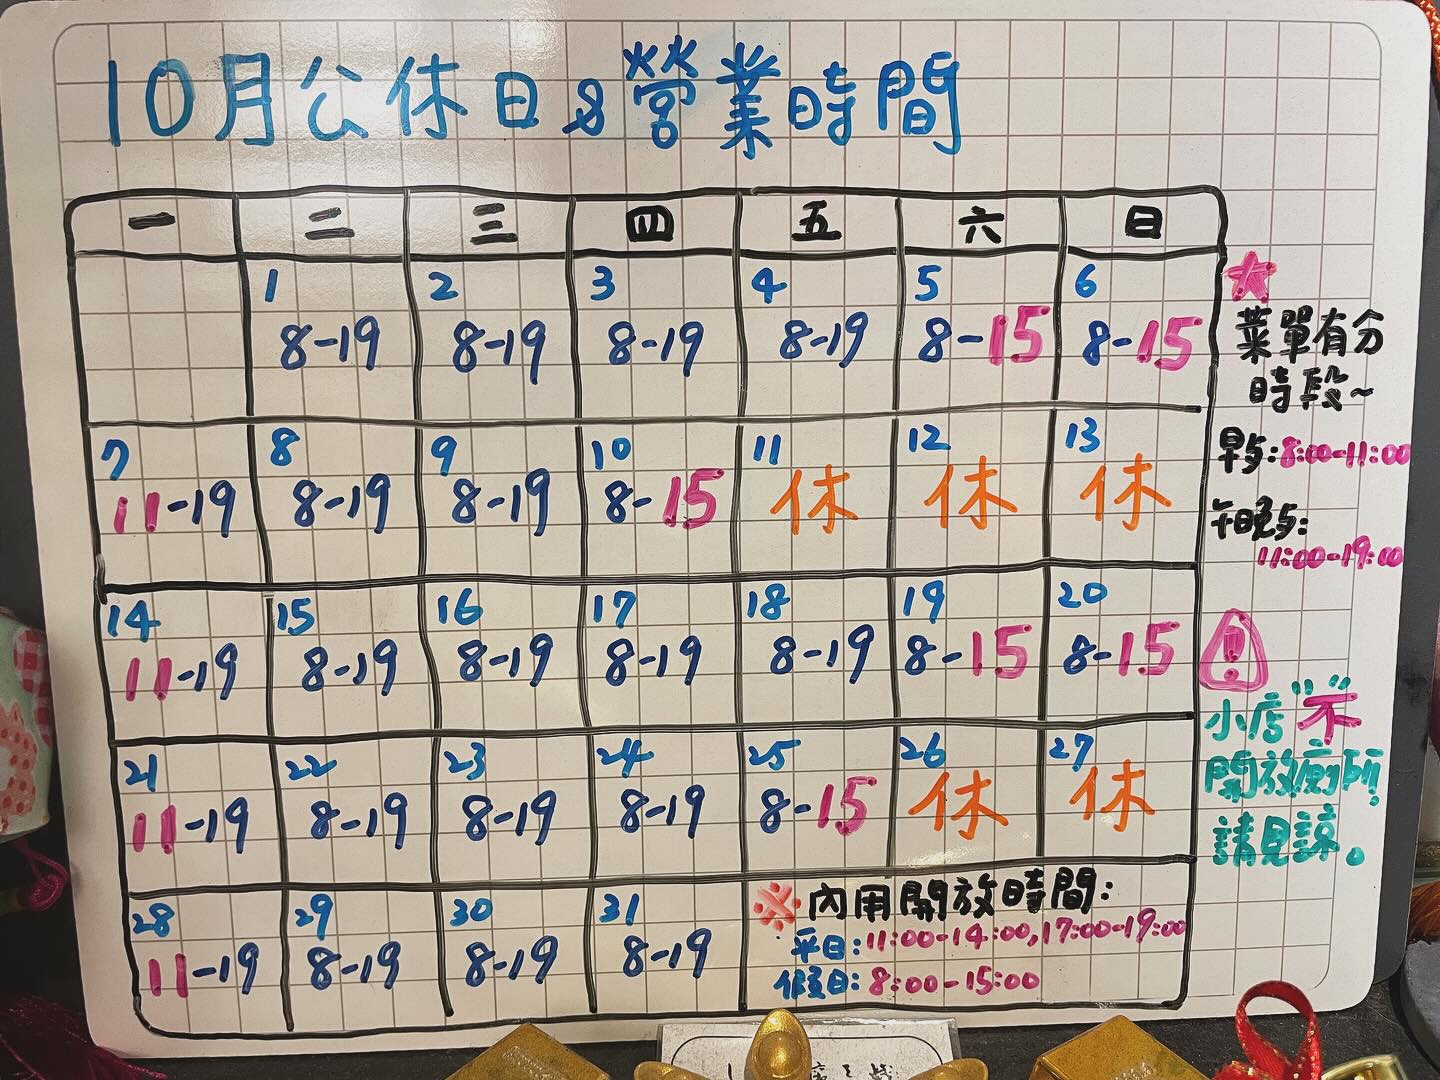 10月公休日&營業時間
一 二 三 四 五 六 日
1 2 3 4 5 6
8-19 8-19 8-19 8-19 8-15 8-15
7 8 9 10 11 12 13
11-19 8-19 8-19 8-15 休 休 休
14 15 16 17 18 19 20
11-19 8-19 8-19 8-19 8-19 8-15 8-15
21 22 23 24 25 26 27
11-19 8-19 8-19 8-19 8-15 休 休
28 29 30 31
11-19 8-19 8-19 8-19
※內用開放時間:
平日:11:00-14:00,17:00-19:00
假日:8:00-15:00
★
菜單有分
時段~
早:8:00-11:00
午晚:
11:00-19:00
!
小店"不"
開放廁所
請見諒。